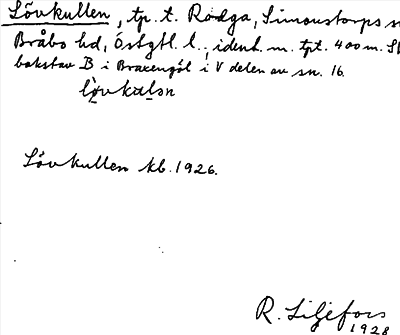 Lövkullen, tp. t. Rodga, Simonstorps
Bråbo hd, Östgtl. l., ident. m. tpt. 400 m. SV
bokstav B i Braxengöl i V delen av sn. 16.
Lövkullen kb. 1926.
R. Liljefors
1928